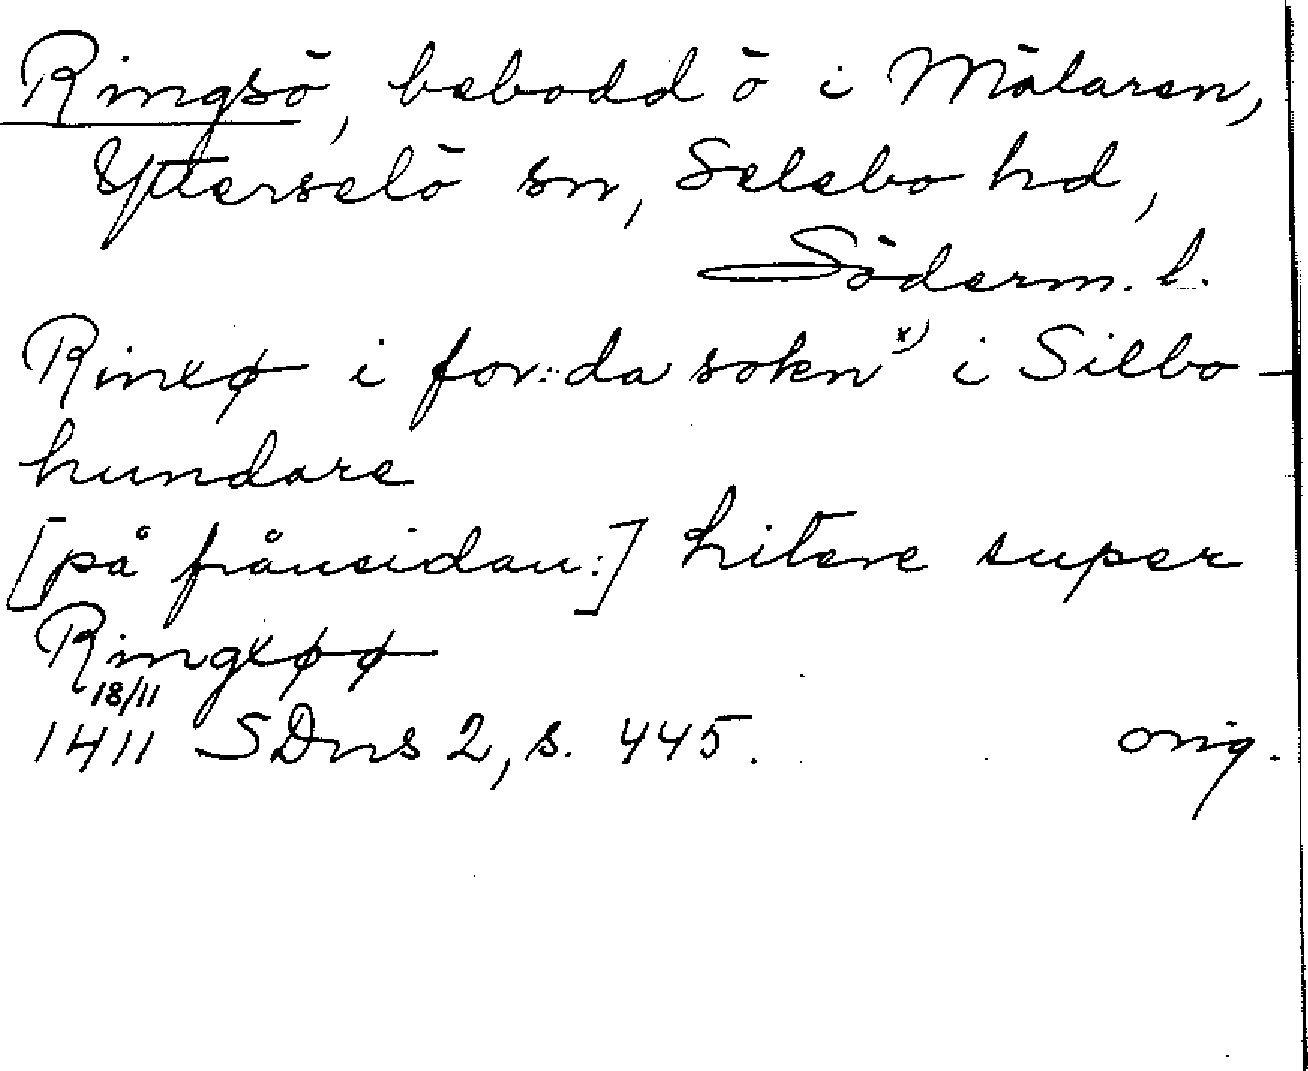 Ringsö, bebodd ö i Mälaren,
Ytterselö sn, Selebo hd,
Söderm. l.
Rinxø i for:da sokn x) i Silbo-
hundare
[på frånsidan:] litere super
Ringxøø
18/11
1411 SDns 2, s. 445. orig.